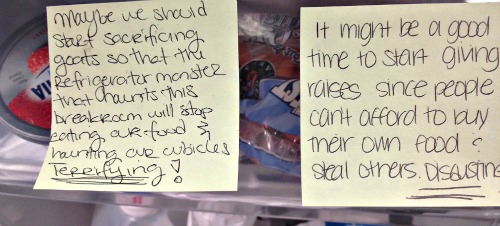 Maybe we should
start sacrificing
goats so that the
Refrigerator monster
that haunts this
breakroom will stop
eating our food &
haunting our cubicles
Terrifying!
It might be a good
time to start giving
raises since people
can't afford to buy
their own food &
steal others. Disgusting